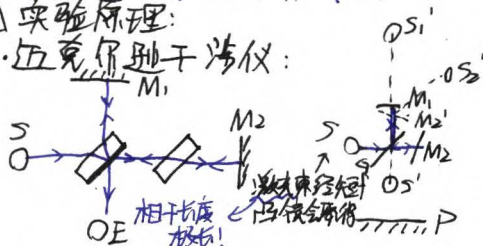 实验原理:
·迈克尔逊干涉仪:
M₁
S
M₂
OE
相干长度
极长!
激光束经短
S₁'
S₂'
M₁
M₂'
S
M₂
S'
P